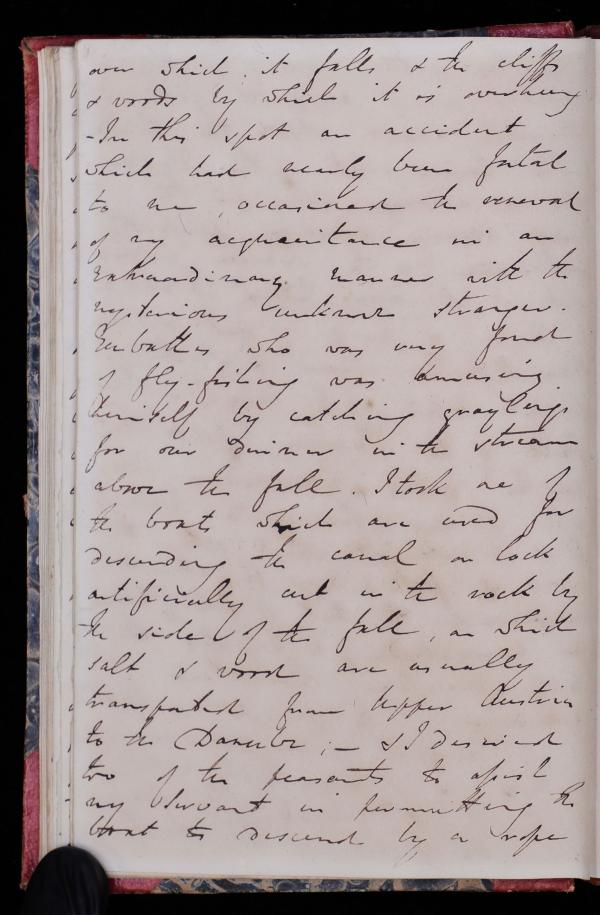 over which it falls & the cliffs
& woods by which it is overhung
- In this spot an accident
which had nearly been fatal
to me, occasioned the renewal
of my acquaintance in an
extraordinary manner with the
mysterious unknown stranger.
Eubathes who was very fond
of fly-fishing was amusing
himself by catching graylings
for our dinner in the stream
above the fall. I took one of
the boats which are used for
descending the canal or lock
artificially cut in the rock by
the side of the fall, on which
salt & wood are usually
transported from Upper Austria
to the Danube; - & I desired
two of the peasants to assist
my servant in permitting the
boat to descend by a rope